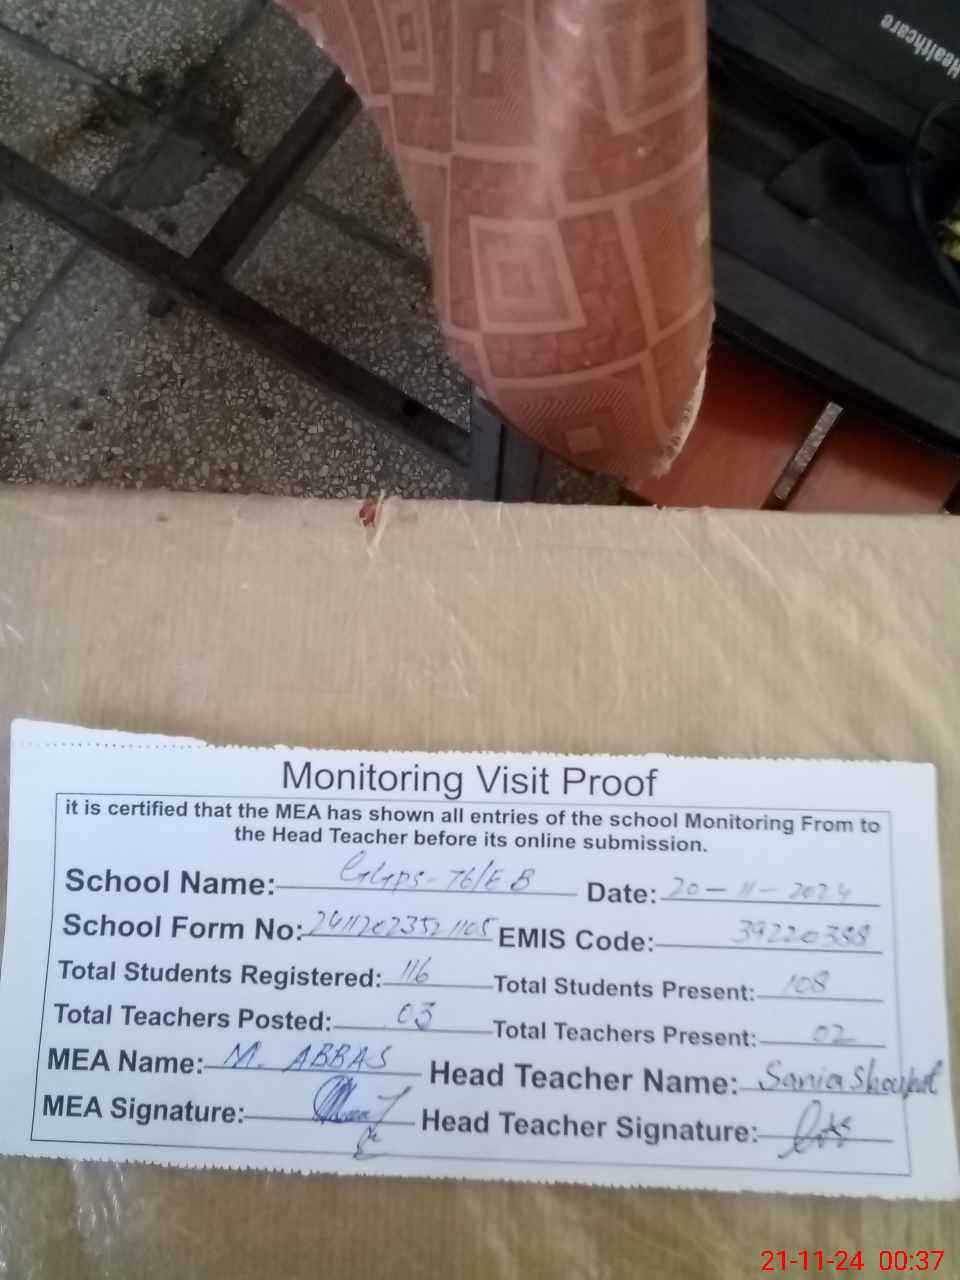 Healthcare
Monitoring Visit Proof
it is certified that the MEA has shown all entries of the school Monitoring From to
the Head Teacher before its online submission.
School Name: GGPS-76/EB Date: 20-11-2024
School Form No: 24112023521105 EMIS Code: 39220388
Total Students Registered: 116 Total Students Present: 108
Total Teachers Posted: 03 Total Teachers Present: 02
MEA Name: M. ABBAS Head Teacher Name: Sania Shoukat
MEA Signature: Head Teacher Signature:
21-11-24 00:37